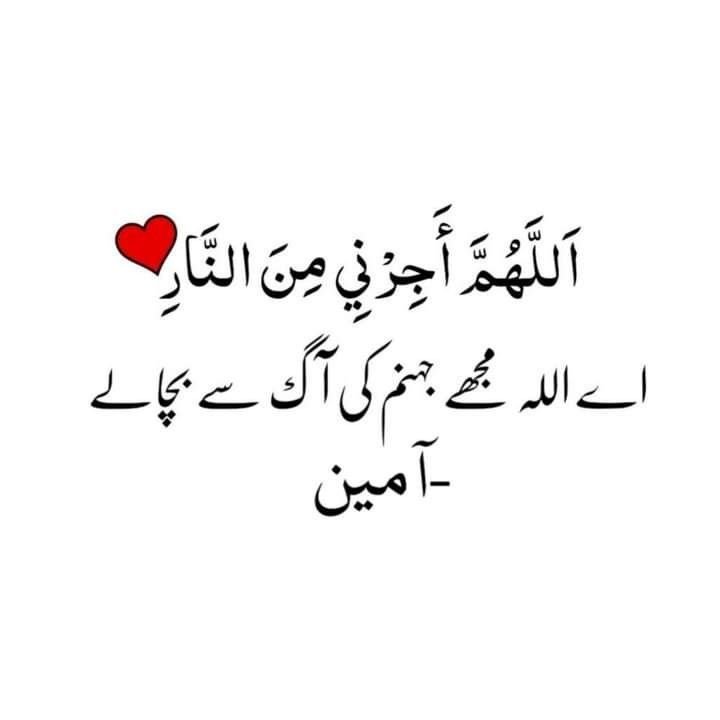 اَللَّهُمَّ أَجِرْنِي مِنَ النَّارِ
اے اللہ مجھے جہنم کی آگ سے بچا لے
-آمین